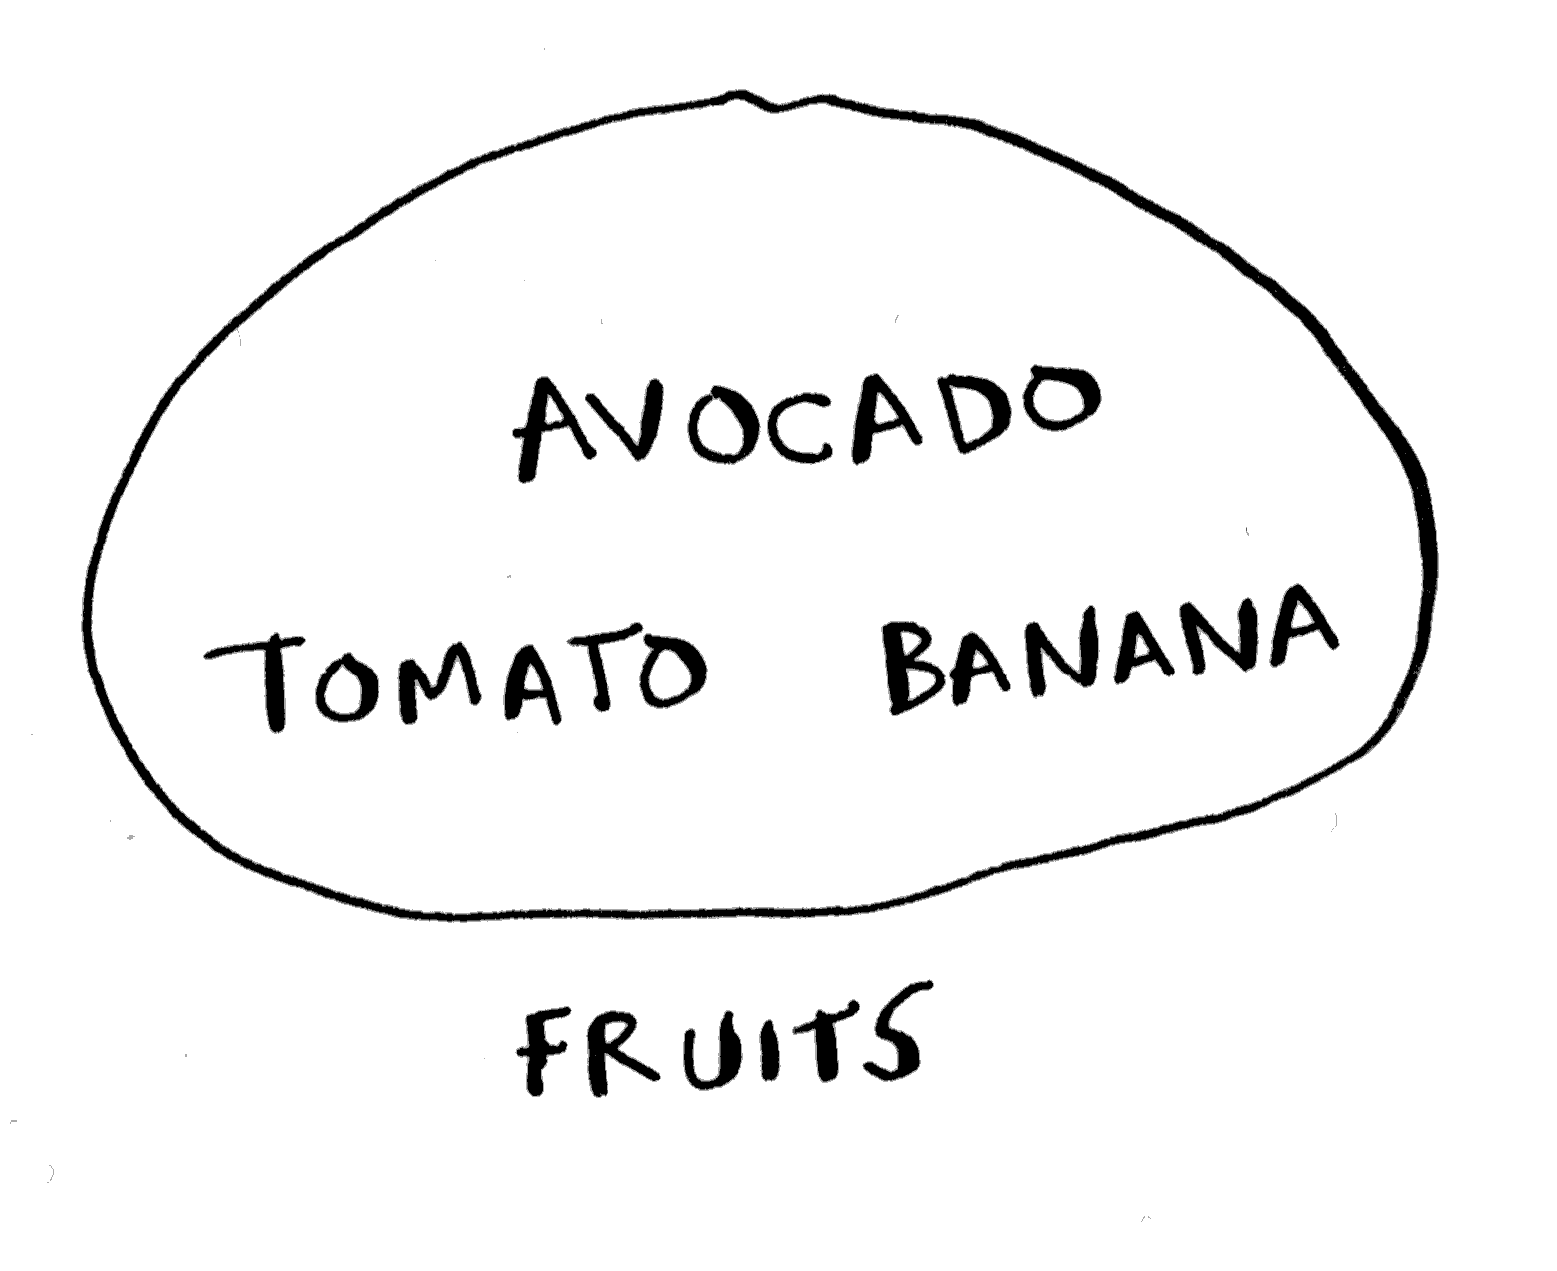 AVOCADO
TOMATO BANANA
FRUITS